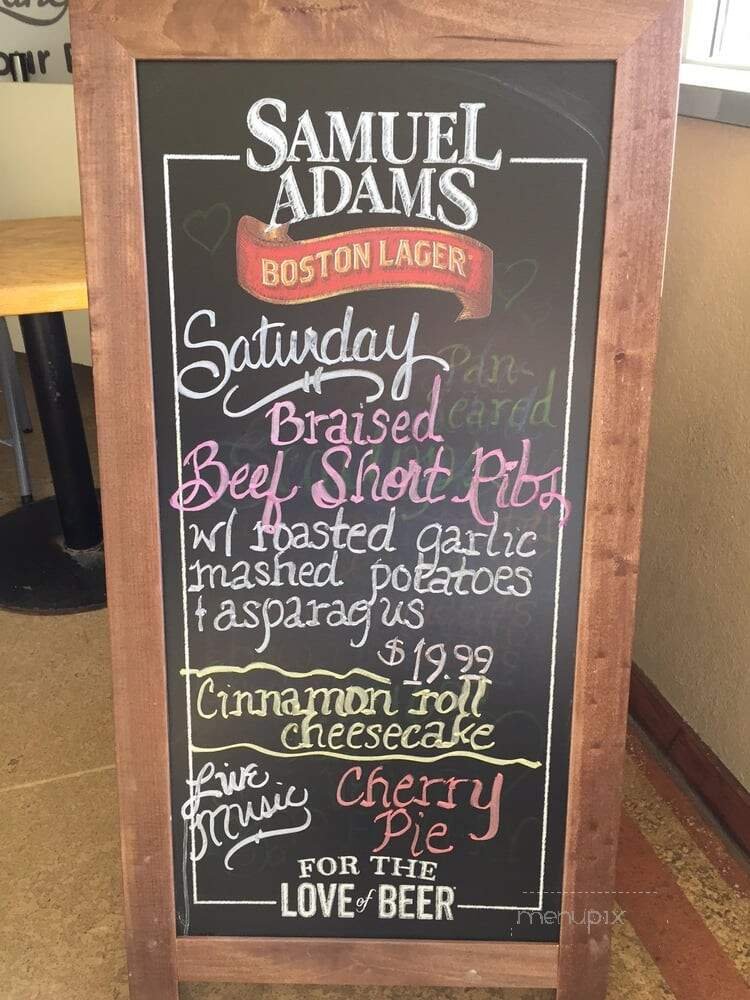 SAMUEL
ADAMS
BOSTON LAGER
Saturday
Pan-
Seared
Braised
Beef Short Ribs
w/ roasted garlic
mashed potatoes
+ asparagus
$19.99
Cinnamon roll
cheesecake
Live
Music
Cherry
Pie
FOR THE
LOVE of BEER
menupix